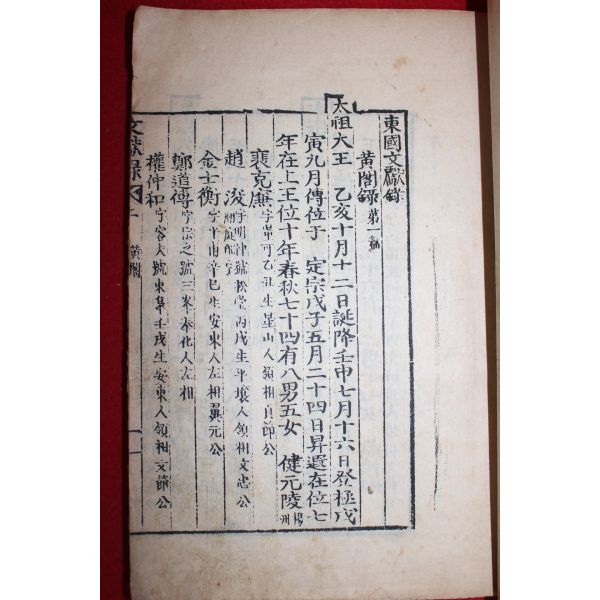 東國文獻錄
黃閣錄 第一編
太祖大王 乙亥十月十二日誕降壬申七月十六日登極戊
寅九月傳位于 定宗戊子五月二十四日昇遐在位七
年在上王位十年春秋七十四有八男五女 健元陵 楊州
裵克廉 字量可乙丑生星山人領相貞節公
趙浚 字明仲號松堂丙戌生平壤人領相文忠公 廟庭配享
金士衡 字平甫辛巳生安東人左相翼元公
鄭道傳 字宗之號三峯奉化人左相
權仲和 字容夫號東皐壬戌生安東人領相文節公
文獻錄 黃閣 一